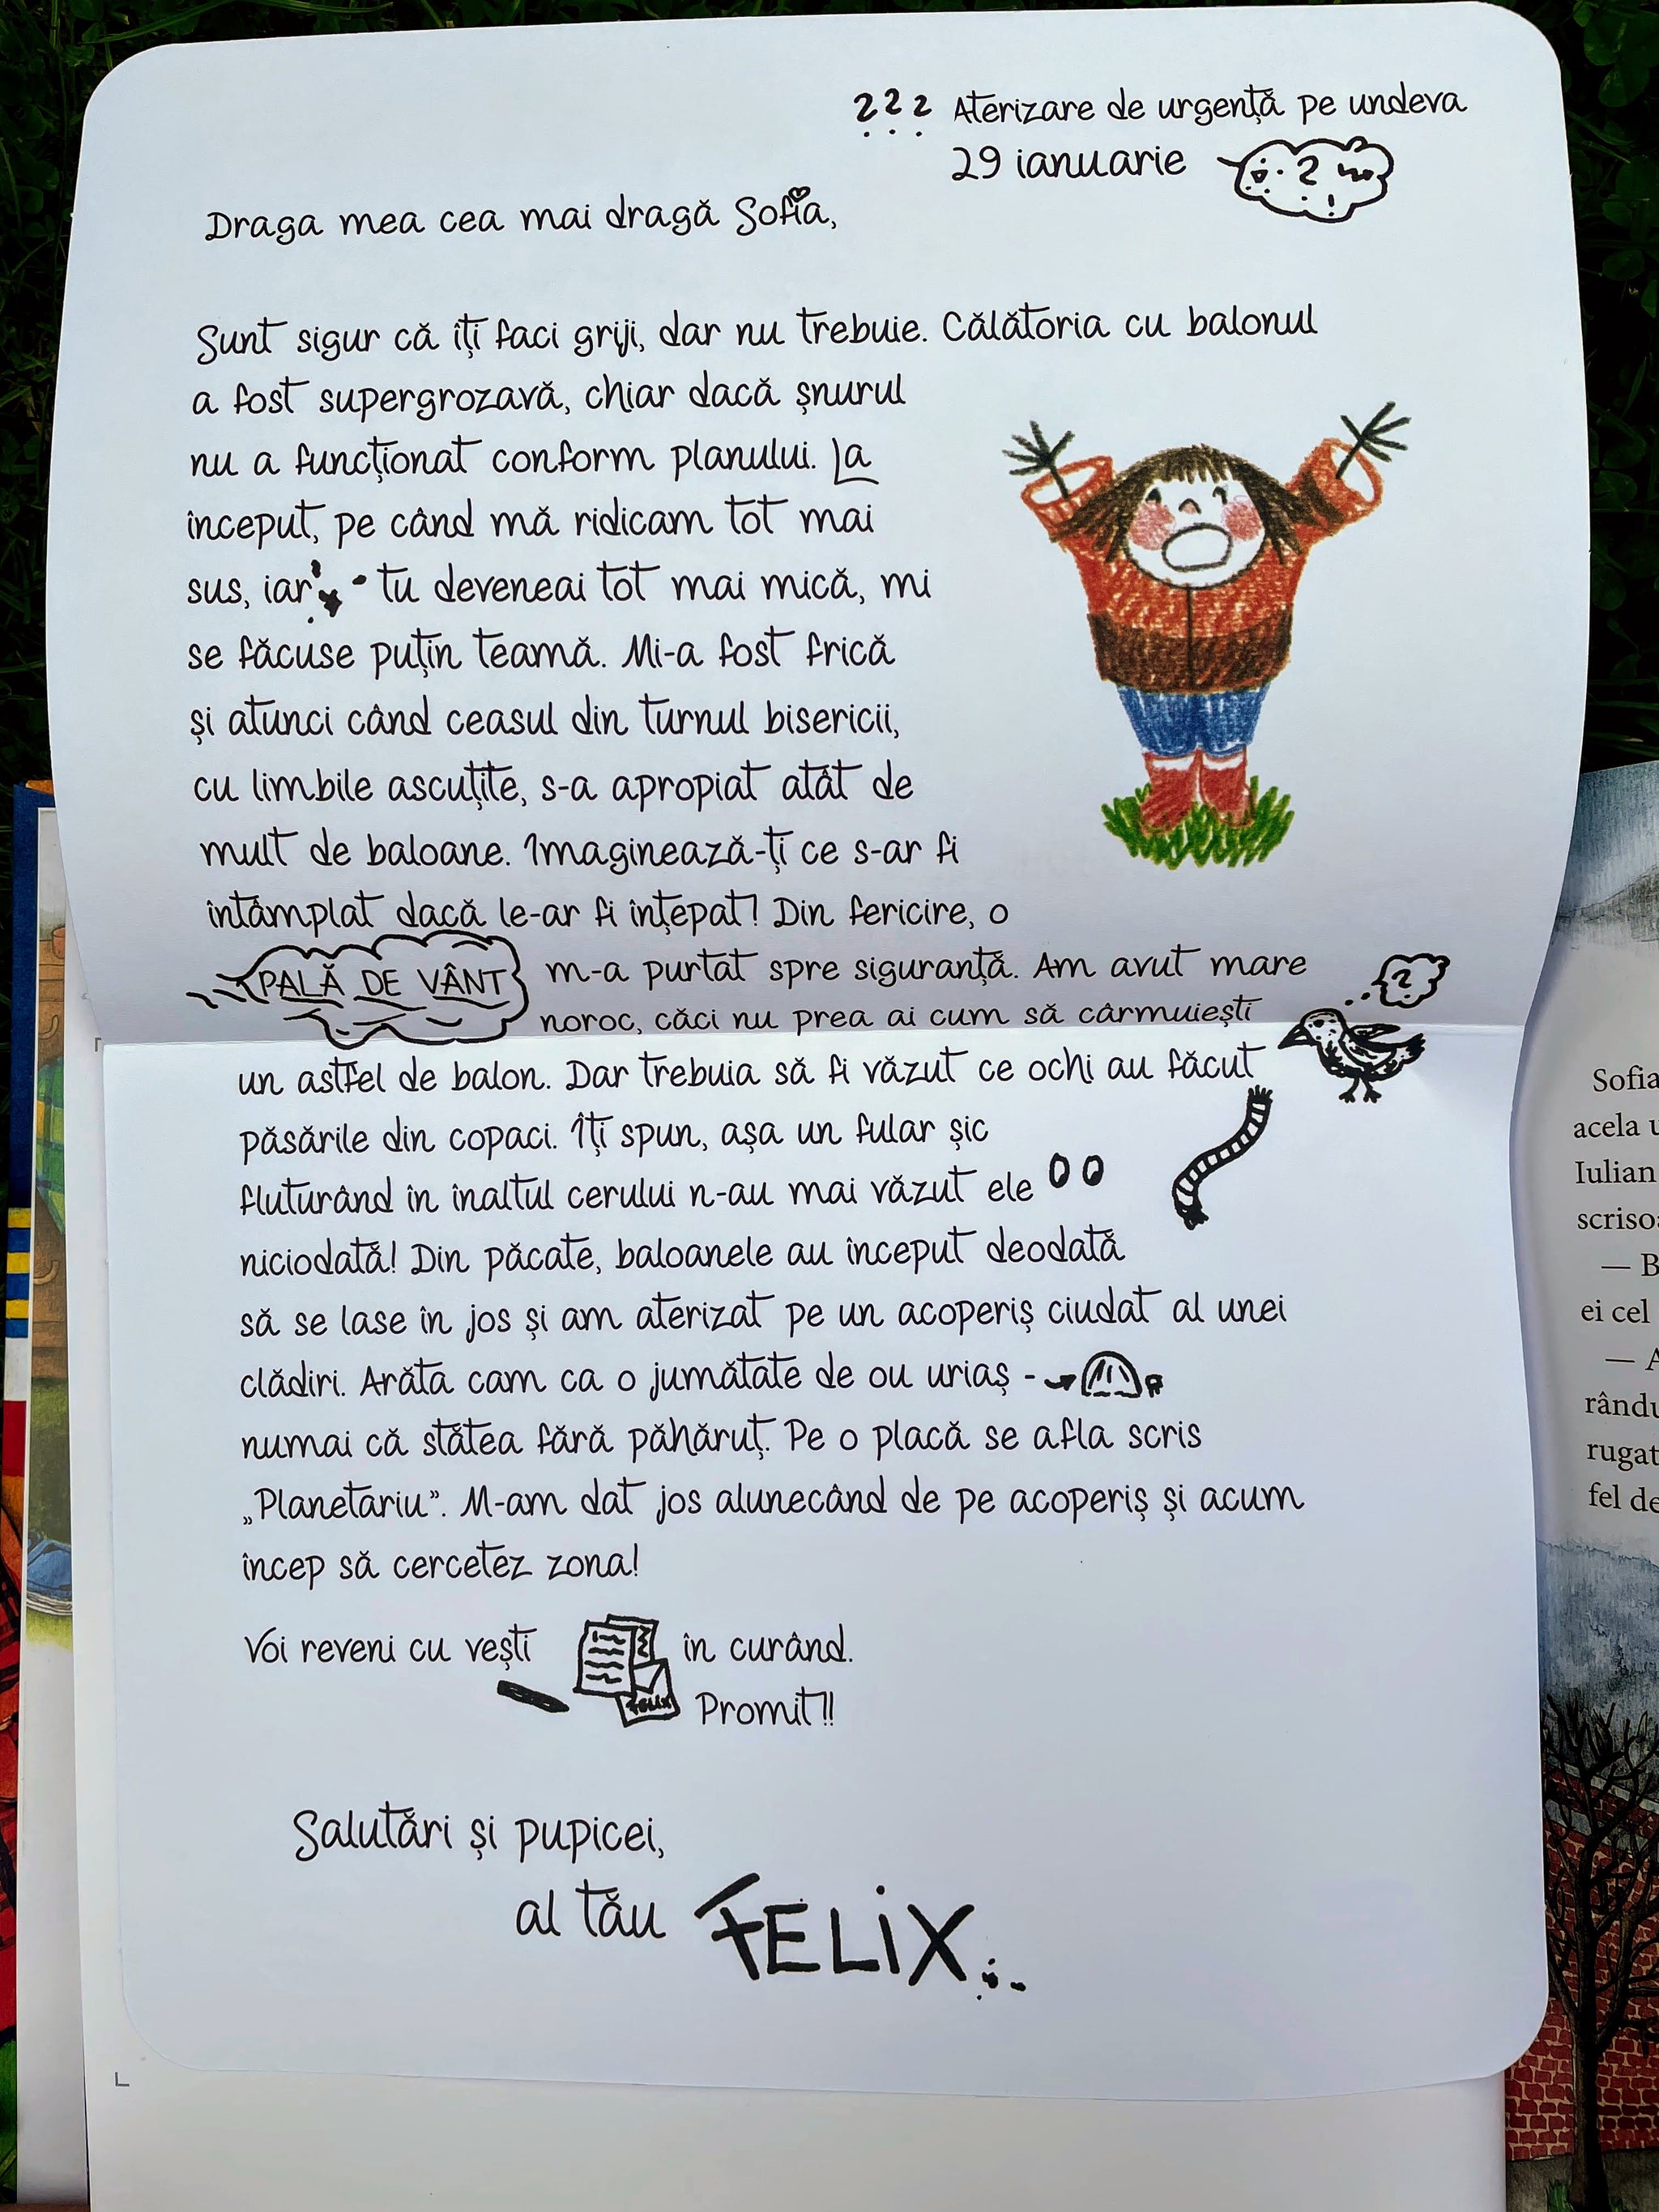 ??? Aterizare de urgență pe undeva
29 ianuarie
?
!
Draga mea cea mai dragă Sofia,
Sunt sigur că îți faci griji, dar nu trebuie. Călătoria cu balonul
a fost supergrozavă, chiar dacă șnurul
nu a funcționat conform planului. La
început, pe când mă ridicam tot mai
sus, iar tu deveneai tot mai mică, mi
se făcuse puțin teamă. Mi-a fost frică
și atunci când ceasul din turnul bisericii,
cu limbile ascuțite, s-a apropiat atât de
mult de baloane. Imaginează-ți ce s-ar fi
întâmplat dacă le-ar fi înțepat! Din fericire, o
PALĂ DE VÂNT m-a purtat spre siguranță. Am avut mare
noroc, căci nu prea ai cum să cârmuiești
?
un astfel de balon. Dar trebuia să fi văzut ce ochi au făcut
păsările din copaci. Îți spun, așa un fular șic
fluturând în înaltul cerului n-au mai văzut ele
niciodată! Din păcate, baloanele au început deodată
să se lase în jos și am aterizat pe un acoperiș ciudat al unei
clădiri. Arăta cam ca o jumătate de ou uriaș -
numai că stătea fără păhăruț. Pe o placă se afla scris
„Planetariu”. M-am dat jos alunecând de pe acoperiș și acum
încep să cercetez zona!
Voi reveni cu vești în curând.
FELIX
Promit!!
Salutări și pupicei,
al tău FELIX
Sofia
acela
Iulian
— B
ei cel
— A
rugat
fel de